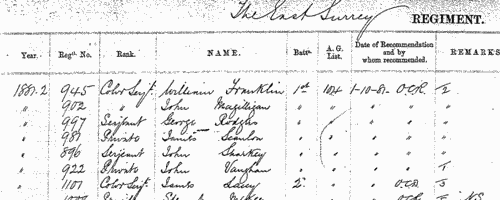 The East Surrey REGIMENT.
Year. Regtl. No. Rank. NAME. Battn. A. G. List. Date of Recommendation and by whom recommended. REMARKS
1881-2 945 Color Serjt. William Franklin 1st 104 1-10-81 O.C.R. 2
" 902 " John Magilligan " " " " "
" 997 Serjeant George Rodgers " " " " "
" 987 Private James Scanlon " " " "
" 896 Serjeant John Sharkey " " " "
" 922 Private John Vaughan " " " "
" 1101 Color Serjt. James Lacey 2 " " O.C.R.